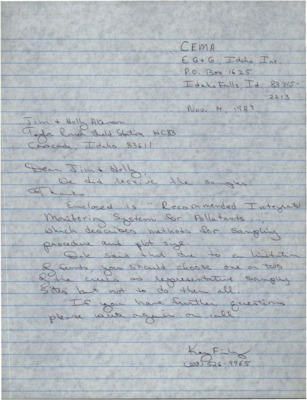 CEMA
EG&G, Idaho, Inc.
P.O. Box 1625
Idaho Falls, Id. 83415-
2213
Nov. 14, 1989
Jim & Holly Akenson
Taylor Ranch Field Station HC83
Cascade, Idaho 83611
Dear Jim & Holly,
We did receive the samples.
Thanks.
Enclosed is Recommended Integrated
Monitoring System for Pollutants...
which describes methods for sampling
procedure and plot size
said that due to a limitation
of funds you should choose one or two
of the as representative sampling
sites but not to do them all.
If you have further questions
please write again or call
Kay
526-9965